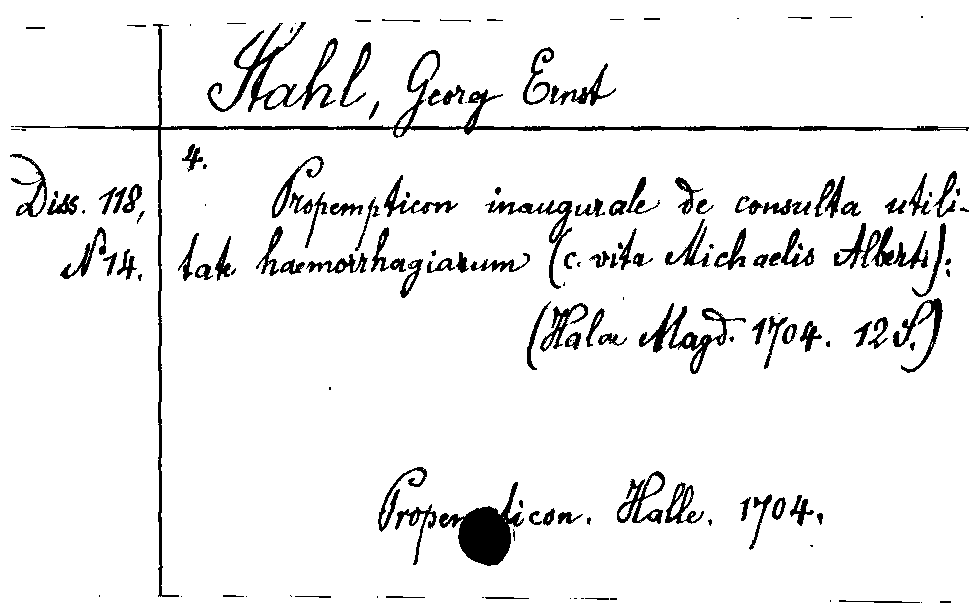 Stahl, Georg Ernst
4.
Diss. 118,
No 14.
Propempticon inaugurale de consulta utili-
tate haemorrhagiarum (c. vita Michaelis Alberti).
(Halae Magd. 1704. 12 S.)
Propempticon. Halle. 1704.